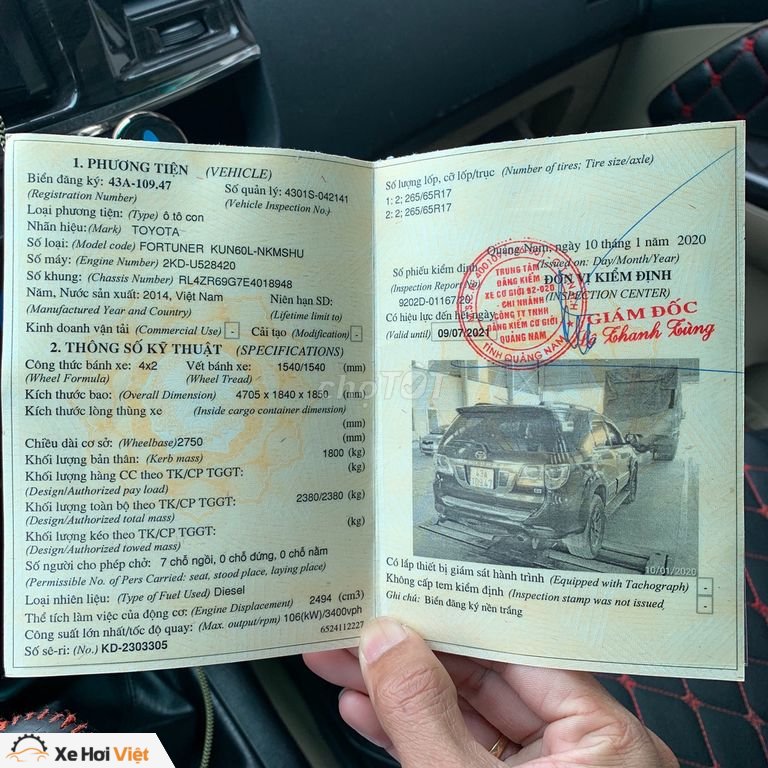 1. PHƯƠNG TIỆN (VEHICLE)
Biển đăng ký: 43A-109.47 Số quản lý: 4301S-042141
(Registration Number) (Vehicle Inspection No.)
Loại phương tiện: (Type) ô tô con
Nhãn hiệu: (Mark) TOYOTA
Số loại: (Model code) FORTUNER KUN60L-NKMSHU
Số máy: (Engine Number) 2KD-U528420
Số khung: (Chassis Number) RL4ZR69G7E4018948
Năm, Nước sản xuất: 2014, Việt Nam Niên hạn SD:
(Manufactured Year and Country) (Lifetime limit to)
Kinh doanh vận tải (Commercial Use) - Cải tạo (Modification) -
2. THÔNG SỐ KỸ THUẬT (SPECIFICATIONS)
Công thức bánh xe: 4x2 Vết bánh xe: 1540/1540 (mm)
(Wheel Formula) (Wheel Tread)
Kích thước bao: (Overall Dimension) 4705 x 1840 x 1850 (mm)
Kích thước lòng thùng xe (Inside cargo container dimension)
(mm)
Chiều dài cơ sở: (Wheelbase) 2750 (mm)
Khối lượng bản thân: (Kerb mass) 1800 (kg)
Khối lượng hàng CC theo TK/CP TGGT: (kg)
(Design/Authorized pay load)
Khối lượng toàn bộ theo TK/CP TGGT: 2380/2380 (kg)
(Design/Authorized total mass)
Khối lượng kéo theo TK/CP TGGT: (kg)
(Design/Authorized towed mass)
Số người cho phép chở: 7 chỗ ngồi, 0 chỗ đứng, 0 chỗ nằm
(Permissible No. of Pers Carried: seat, stood place, laying place)
Loại nhiên liệu: (Type of Fuel Used) Diesel
Thể tích làm việc của động cơ: (Engine Displacement) 2494 (cm3)
Công suất lớn nhất/tốc độ quay: (Max. output/rpm) 106(kW)/3400vph
6524112227
Số sê-ri: (No.) KD-2303305
Số lượng lốp, cỡ lốp/trục (Number of tires; Tire size/axle)
1: 2; 265/65R17
2: 2; 265/65R17
Quảng Nam, ngày 10 tháng 1 năm 2020
(Issued on: Day/Month/Year)
Số phiếu kiểm định ĐƠN VỊ KIỂM ĐỊNH
(Inspection Report (INSPECTION CENTER)
9202D-01167/20
Có hiệu lực đến hết ngày
(Valid until) 09/07/2021
TRUNG TÂM
ĐĂNG KIỂM
XE CƠ GIỚI 92-02D
- CHI NHÁNH
CÔNG TY TNHH
ĐĂNG KIỂM CƠ GIỚI
QUẢNG NAM
TỈNH QUẢNG NAM
GIÁM ĐỐC
Thanh Tùng
chợTỐT
10/01/2020
Có lắp thiết bị giám sát hành trình (Equipped with Tachograph) -
Không cấp tem kiểm định (Inspection stamp was not issued) -
Ghi chú: Biển đăng ký nền trắng
Xe Hơi Việt